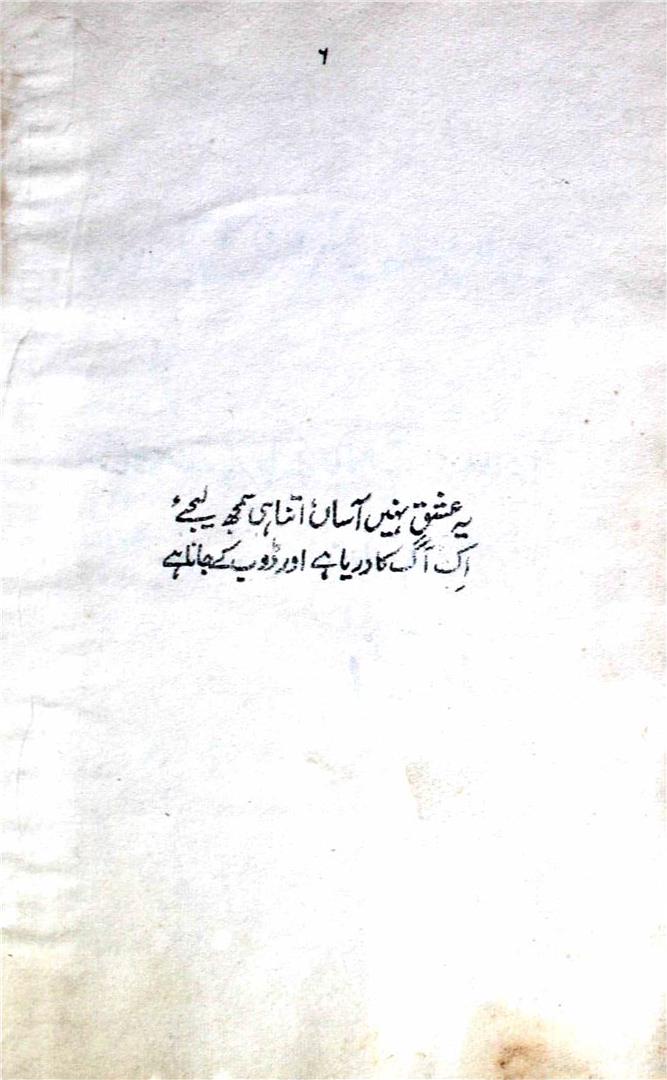 ۶
یہ عشق نہیں آساں اتنا ہی سمجھ لیجئے
اِک آگ کا دریا ہے اور ڈوب کے جانا ہے